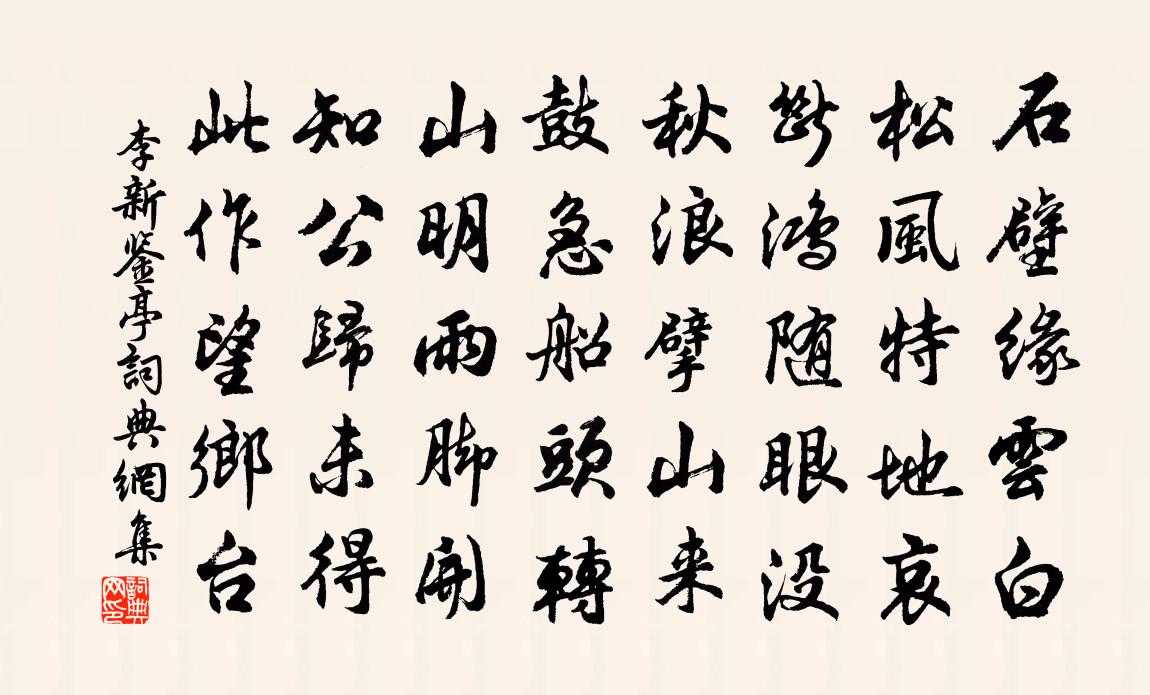 石壁缘雲白
松風特地哀
斷鴻随眼没
秋浪擘山来
鼓急船頭轉
山明雨脚開
知公歸未得
此作望鄉台
李新鉴亭詞典網集
詞典网印